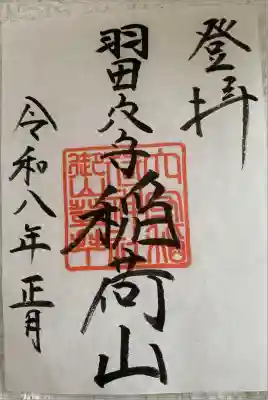 登拝
羽田穴守稲荷山
令和八年 正月